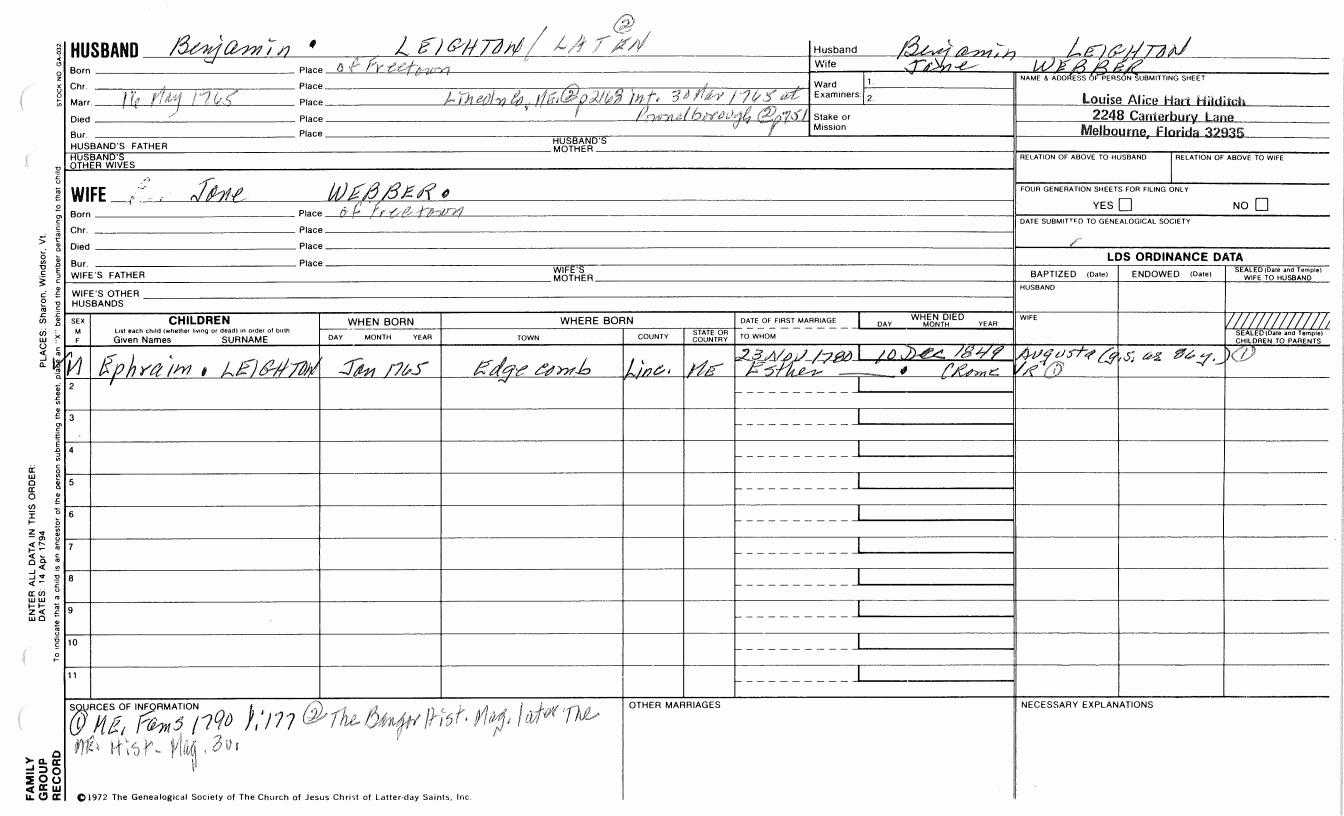 ②
HUSBAND Benjamin • LEIGHTON / LATEN
Born Place of Freetown
Chr. Place
Marr. 16 May 1765 Place Lincoln Co, ME. ② p2163 int. 30 Mar 1765 at
Died Place Pownalborough ② p751
Bur. Place
HUSBAND'S FATHER HUSBAND'S MOTHER
HUSBAND'S OTHER WIVES
Husband Benjamin LEIGHTON
Wife Jane WEBBER
Ward Examiners 1. 2.
Stake or Mission
NAME & ADDRESS OF PERSON SUBMITTING SHEET
Louise Alice Hart Hilditch
2248 Canterbury Lane
Melbourne, Florida 32935
RELATION OF ABOVE TO HUSBAND RELATION OF ABOVE TO WIFE
FOUR GENERATION SHEETS FOR FILING ONLY
YES NO
DATE SUBMITTED TO GENEALOGICAL SOCIETY
WIFE Jane WEBBER •
Born Place of Freetown
Chr. Place
Died Place
Bur. Place
WIFE'S FATHER WIFE'S MOTHER
WIFE'S OTHER HUSBANDS
LDS ORDINANCE DATA
BAPTIZED (Date) ENDOWED (Date) SEALED (Date and Temple) WIFE TO HUSBAND
HUSBAND
WIFE
SEALED (Date and Temple) CHILDREN TO PARENTS
SEX M F
CHILDREN
List each child (whether living or dead) in order of birth
Given Names SURNAME
WHEN BORN
DAY MONTH YEAR
WHERE BORN
TOWN COUNTY STATE OR COUNTRY
DATE OF FIRST MARRIAGE
TO WHOM
WHEN DIED
DAY MONTH YEAR
23 Nov 1780 10 Dec 1849 Augusta (g.s. as 86 y.) ①
M Ephraim • LEIGHTON Jan 1765 Edgecomb Linc. ME Esther • (Rome VR ①
2
3
4
5
6
7
8
9
10
11
SOURCES OF INFORMATION
① ME. Fams 1790 1:177 ② The Bangor Hist. Mag. later The
ME. Hist. Mag. 3v.
OTHER MARRIAGES
NECESSARY EXPLANATIONS
©1972 The Genealogical Society of The Church of Jesus Christ of Latter-day Saints, Inc.
STOCK NO. GA-032
To indicate that a child is an ancestor of the person submitting the sheet, place an "X" behind the number pertaining to that child
PLACES: Sharon, Windsor, Vt.
ENTER ALL DATA IN THIS ORDER:
DATES: 14 Apr 1794
FAMILY
GROUP
RECORD